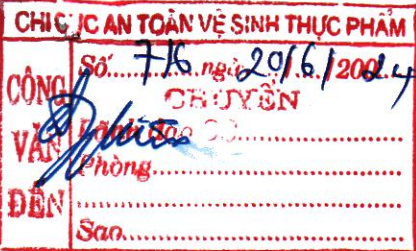 CHI CỤC AN TOÀN VỆ SINH THỰC PHẨM
CÔNG VĂN ĐẾN
Số 716 ngày 20/6/2024
CHUYỂN
Phòng
Sao